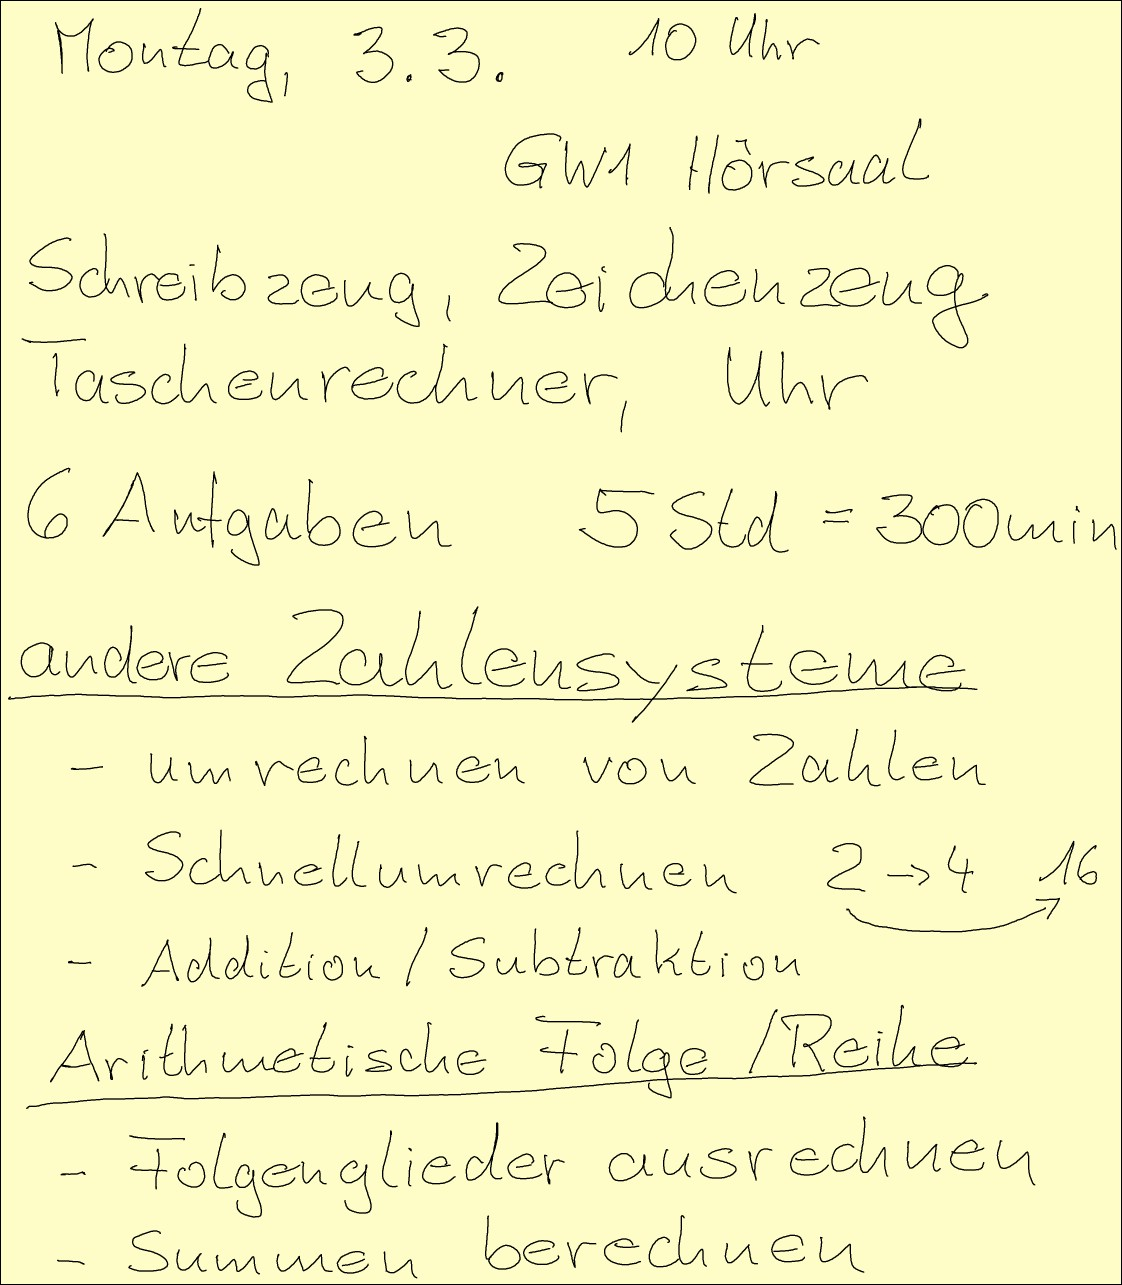 Montag, 3.3. 10 Uhr
GW1 Hörsaal
Schreibzeug, Zeichenzeug
Taschenrechner, Uhr
6 Aufgaben 5 Std = 300min
andere Zahlensysteme
- umrechnen von Zahlen
- Schnellumrechnen 2 → 4 16
- Addition / Subtraktion
Arithmetische Folge / Reihe
- Folgenglieder ausrechnen
- Summen berechnen